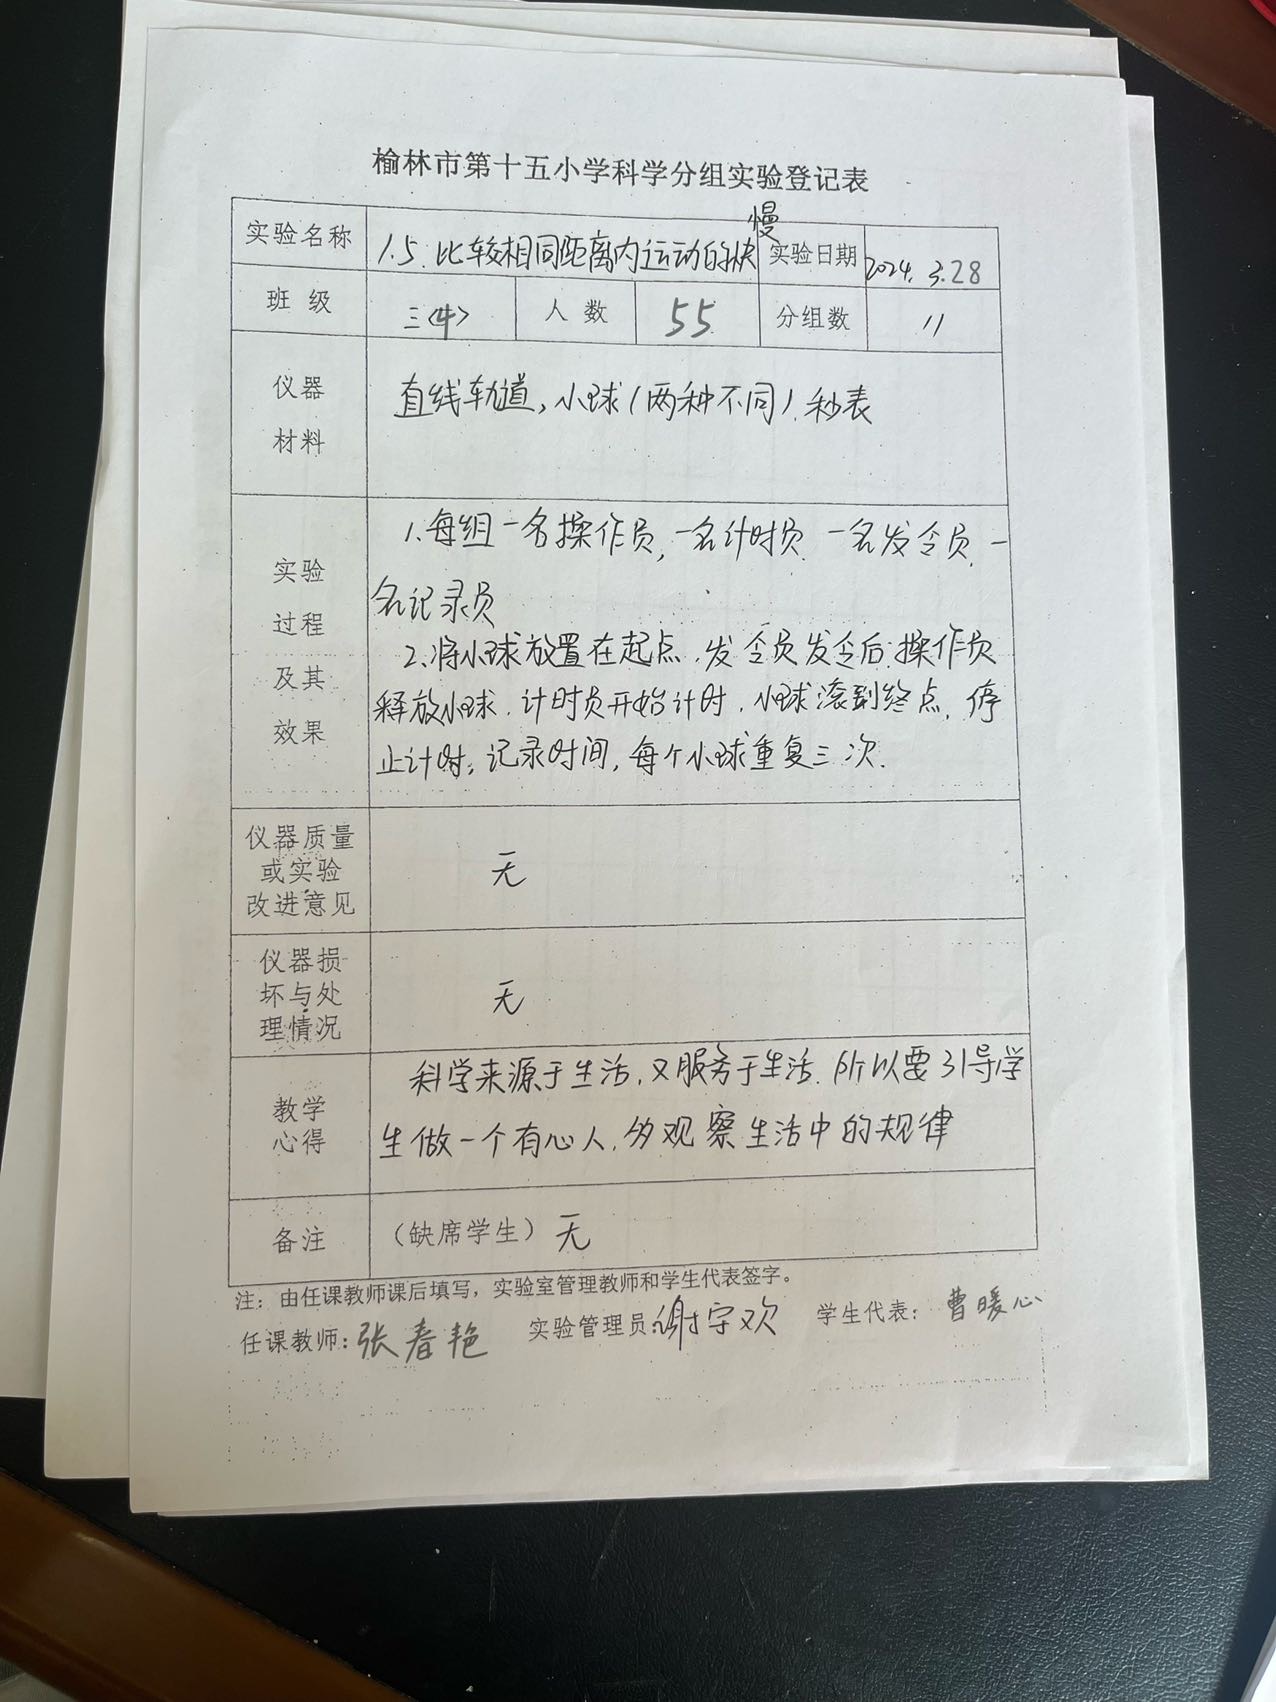 榆林市第十五小学科学分组实验登记表
实验名称 1.5 比较相同距离内运动的快慢 实验日期 2024.3.28
班 级 三<4> 人 数 55 分组数 11
仪器
材料
直线轨道,小球(两种不同).秒表
实验
过程
及其
效果
1.每组一名操作员,一名计时员.一名发令员.一
名记录员
2.将小球放置在起点.发令员发令后.操作员
释放小球.计时员开始计时.小球滚到终点.停
止计时;记录时间,每个小球重复三次.
仪器质量
或实验
改进意见
无
仪器损
坏与处
理情况
无
教学
心得
科学来源于生活,又服务于生活.所以要引导学
生做一个有心人.多观察生活中的规律
备注 (缺席学生) 无
注:由任课教师课后填写,实验室管理教师和学生代表签字。
任课教师:张春艳 实验管理员:谢宇欢 学生代表:曹暖心